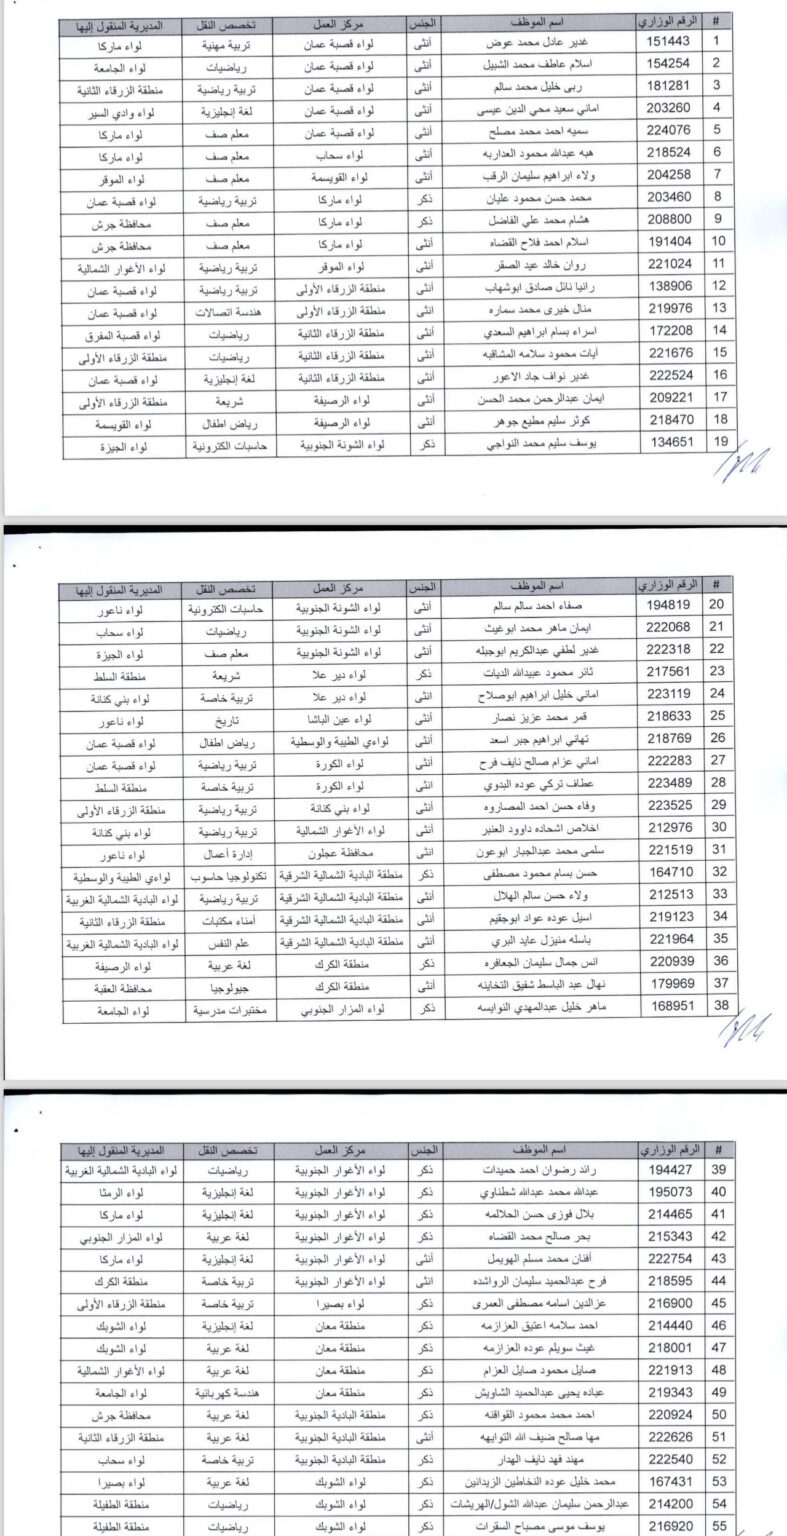 # الرقم الوزاري اسم الموظف الجنس مركز العمل تخصص النقل المديرية المنقول إليها
1 151443 غدير عادل محمد عوض أنثى لواء قصبة عمان تربية مهنية لواء ماركا
2 154254 اسلام عاطف محمد الشبيل أنثى لواء قصبة عمان رياضيات لواء الجامعة
3 181281 ربى خليل محمد سالم أنثى لواء قصبة عمان تربية رياضية منطقة الزرقاء الثانية
4 203260 اماني سعيد محي الدين عيسى أنثى لواء قصبة عمان لغة إنجليزية لواء وادي السير
5 224076 سميه احمد محمد مصلح أنثى لواء قصبة عمان معلم صف لواء ماركا
6 218524 هبه عبدالله محمود العداربه أنثى لواء سحاب معلم صف لواء ماركا
7 204258 ولاء ابراهيم سليمان الرقب أنثى لواء القويسمة معلم صف لواء الموقر
8 203460 محمد حسن محمود عليان ذكر لواء ماركا تربية رياضية لواء قصبة عمان
9 208800 هشام محمد علي الفاضل ذكر لواء ماركا معلم صف محافظة جرش
10 191404 اسلام احمد فلاح القضاه أنثى لواء ماركا معلم صف محافظة جرش
11 221024 روان خالد عيد الصقر أنثى لواء الموقر تربية رياضية لواء الأغوار الشمالية
12 138906 رانيا نائل صادق ابوشهاب أنثى منطقة الزرقاء الأولى تربية رياضية لواء قصبة عمان
13 219976 منال خيرى محمد سماره أنثى منطقة الزرقاء الأولى هندسة اتصالات لواء قصبة عمان
14 172208 اسراء بسام ابراهيم السعدي أنثى منطقة الزرقاء الثانية رياضيات لواء قصبة المفرق
15 221676 آيات محمود سلامه المشاقبه أنثى منطقة الزرقاء الثانية رياضيات منطقة الزرقاء الأولى
16 222524 غدير نواف جاد الاعور أنثى منطقة الزرقاء الثانية لغة إنجليزية لواء قصبة عمان
17 209221 ايمان عبدالرحمن محمد الحسن أنثى لواء الرصيفة شريعة منطقة الزرقاء الأولى
18 218470 كوثر سليم مطيع جوهر أنثى لواء الرصيفة رياض اطفال لواء القويسمة
19 134651 يوسف سليم محمد النواجي ذكر لواء الشونة الجنوبية حاسبات الكترونية لواء الجيزة
# الرقم الوزاري اسم الموظف الجنس مركز العمل تخصص النقل المديرية المنقول إليها
20 194819 صفاء احمد سالم سالم أنثى لواء الشونة الجنوبية حاسبات الكترونية لواء ناعور
21 222068 ايمان ماهر محمد ابوغيث أنثى لواء الشونة الجنوبية رياضيات لواء سحاب
22 222318 غدير لطفي عبدالكريم ابوجبله أنثى لواء الشونة الجنوبية معلم صف لواء الجيزة
23 217561 ثائر محمود عبيدالله الديات ذكر لواء دير علا شريعة منطقة السلط
24 223119 اماني خليل ابراهيم ابوصلاح انثى لواء دير علا تربية خاصة لواء بني كنانة
25 218633 قمر محمد عزيز نصار أنثى لواء عين الباشا تاريخ لواء ناعور
26 218769 تهاني ابراهيم جبر اسعد أنثى لواءي الطيبة والوسطية رياض اطفال لواء قصبة عمان
27 222283 اماني عزام صالح نايف فرح أنثى لواء الكورة تربية رياضية لواء قصبة عمان
28 223489 عطاف تركي عوده البدوي انثى لواء الكورة تربية خاصة منطقة السلط
29 223525 وفاء حسن احمد المصاروه أنثى لواء بني كنانة تربية رياضية منطقة الزرقاء الأولى
30 212976 اخلاص اشحاده داوود العنبر أنثى لواء الأغوار الشمالية تربية رياضية لواء بني كنانة
31 221519 سلمى محمد عبدالجبار ابوعون انثى محافظة عجلون إدارة أعمال لواء ناعور
32 164710 حسن بسام محمود مصطفى ذكر منطقة البادية الشمالية الشرقية تكنولوجيا حاسوب لواءي الطيبة والوسطية
33 212513 ولاء حسن سالم الهلال أنثى منطقة البادية الشمالية الشرقية تربية رياضية لواء البادية الشمالية الغربية
34 219123 اسيل عوده عواد ابوجقيم أنثى منطقة البادية الشمالية الشرقية أمناء مكتبات منطقة الزرقاء الثانية
35 221964 باسله منيزل عايد البري أنثى منطقة البادية الشمالية الشرقية علم النفس لواء البادية الشمالية الغربية
36 220939 انس جمال سليمان الجعافره ذكر منطقة الكرك لغة عربية لواء الرصيفة
37 179969 نهال عبد الباسط شفيق التخاينه أنثى منطقة الكرك جيولوجيا محافظة العقبة
38 168951 ماهر خليل عبدالمهدي النوايسه ذكر لواء المزار الجنوبي مختبرات مدرسية لواء الجامعة
# الرقم الوزاري اسم الموظف الجنس مركز العمل تخصص النقل المديرية المنقول إليها
39 194427 رائد رضوان احمد حميدات ذكر لواء الأغوار الجنوبية رياضيات لواء البادية الشمالية الغربية
40 195073 عبدالله محمد عبدالله شطناوي ذكر لواء الأغوار الجنوبية لغة إنجليزية لواء الرمثا
41 214465 بلال فوزى حسن الحلالمه ذكر لواء الأغوار الجنوبية لغة إنجليزية لواء ماركا
42 215343 بحر صالح محمد القضاه ذكر لواء الأغوار الجنوبية لغة عربية لواء المزار الجنوبي
43 222754 أفنان محمد مسلم الهويمل أنثى لواء الأغوار الجنوبية لغة إنجليزية لواء ماركا
44 218595 فرح عبدالحميد سليمان الرواشده انثى لواء الأغوار الجنوبية تربية خاصة منطقة الكرك
45 216900 عزالدين اسامه مصطفى العمرى ذكر لواء بصيرا تربية خاصة منطقة الزرقاء الأولى
46 214440 احمد سلامه اعتيق العزازمه ذكر منطقة معان لغة إنجليزية لواء الشوبك
47 218001 غيث سويلم عوده العزازمه ذكر منطقة معان لغة عربية لواء الشوبك
48 221913 صايل محمود صايل العزام ذكر منطقة معان لغة عربية لواء الأغوار الشمالية
49 219343 عباده يحيى عبدالحميد الشاويش ذكر منطقة معان هندسة كهربائية لواء الجامعة
50 220924 احمد محمد محمود القواقنه ذكر منطقة البادية الجنوبية لغة عربية محافظة جرش
51 222626 مها صالح ضيف الله التوايهه أنثى منطقة البادية الجنوبية لغة عربية منطقة الزرقاء الثانية
52 222540 مهند فهد نايف الهدار ذكر منطقة البادية الجنوبية تربية خاصة لواء سحاب
53 167431 محمد خليل عوده النخاطين الزيدانين ذكر لواء الشوبك لغة عربية لواء بصيرا
54 214200 عبدالرحمن سليمان عبدالله الشول/الهريشات ذكر لواء الشوبك رياضيات منطقة الطفيلة
55 216920 يوسف موسى مصباح السقرات ذكر لواء الشوبك رياضيات منطقة الطفيلة